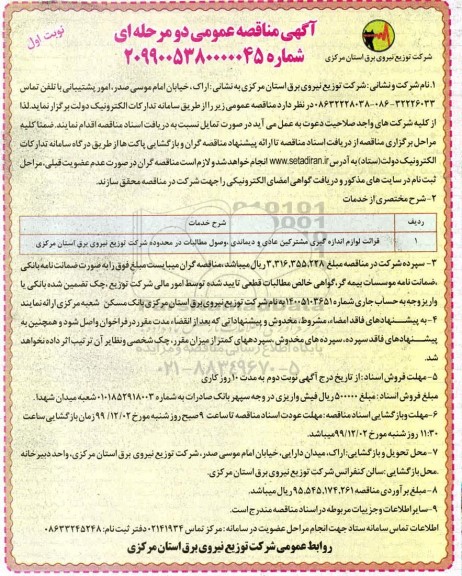 نوبت اول
آگهی مناقصه عمومی دو مرحله ای
شماره ۲۰۹۹۰۰۵۳۸۰۰۰۰۰۴۵
شرکت توزیع نیروی برق استان مرکزی
۱. نام شرکت و نشانی: شرکت توزیع نیروی برق استان مرکزی به نشانی: اراک، خیابان امام موسی صدر، امور پشتیبانی با تلفن تماس
۳۲۲۲۶۰۳۳-۰۸۶-۰۸۶۳۲۲۲۸۰۳۸ در نظر دارد مناقصه عمومی زیر را از طریق سامانه تدارکات الکترونیک دولت برگزار نماید. لذا
از کلیه شرکت های واجد صلاحیت دعوت به عمل می آید در صورت تمایل نسبت به دریافت اسناد مناقصه اقدام نمایند. ضمنا کلیه
مراحل برگزاری مناقصه از دریافت اسناد مناقصه تا ارائه پیشنهاد مناقصه گران و بازگشایی پاکت ها از طریق درگاه سامانه تدارکات
الکترونیک دولت (ستاد) به آدرس www.setadiran.ir انجام خواهد شد و لازم است مناقصه گران در صورت عدم عضویت قبلی، مراحل
ثبت نام در سایت های مذکور و دریافت گواهی امضای الکترونیکی را جهت شرکت در مناقصه محقق سازند.
۲- شرح مختصری از خدمات
ردیف شرح خدمات
۱ قرائت لوازم اندازه گیری مشترکین عادی و دیماندی، وصول مطالبات در محدوده شرکت توزیع نیروی برق استان مرکزی
۳- سپرده شرکت در مناقصه مبلغ ۳،۳۱۶،۳۵۵،۲۲۸ ریال میباشد، مناقصه گران میبایست مبلغ فوق را به صورت ضمانت نامه بانکی
، ضمانت نامه موسسات بیمه گر، گواهی خالص مطالبات قطعی تایید شده توسط امور مالی شرکت توزیع، چک تضمین شده بانکی یا
واریز وجه به حساب جاری شماره ۱۴۰۰۵۱۰۳۶۵۱ به نام شرکت توزیع نیروی برق استان مرکزی بانک مسکن شعبه مرکزی ارائه نمایند
۴- به پیشنهادهای فاقد امضاء، مشروط، مخدوش و پیشنهاداتی که بعد از انقضاء مدت مقرر در فراخوان واصل شود و همچنین به
پیشنهادهای فاقد سپرده، سپرده های مخدوش، سپردههای کمتر از میزان مقرر، چک شخصی و نظایر آن ترتیب اثر داده نخواهد
شد.
۵- مهلت فروش اسناد: از تاریخ درج آگهی نوبت دوم به مدت ۱۰ روز کاری
مبلغ فروش اسناد: مبلغ ۵۰۰۰۰۰ ریال فیش واریزی در وجه سپهر بانک صادرات به شماره ۰۱۰۱۸۵۲۹۱۸۰۰۳ شعبه میدان شهدا.
۶- مهلت و بازگشایی اسناد مناقصه: مهلت عودت اسناد مناقصه تا ساعت ۹ صبح روز شنبه مورخ ۹۹/۱۲/۰۲ زمان بازگشایی ساعت
۱۱:۳۰ روز شنبه مورخ ۹۹/۱۲/۰۲ میباشد.
۷- محل تحویل و بازگشایی: اراک، میدان دارایی، خیابان امام موسی صدر، شرکت توزیع نیروی برق استان مرکزی، واحد دبیرخانه
. محل بازگشایی: سالن کنفرانس شرکت توزیع نیروی برق استان مرکزی.
۸- مبلغ برآوردی مناقصه ۹۵،۵۴۵،۱۷۴،۲۶۱ ریال میباشد.
۹- سایر اطلاعات و جزییات مربوطه در اسناد مناقصه مندرج است.
اطلاعات تماس سامانه ستاد جهت انجام مراحل عضویت در سامانه: مرکز تماس ۰۲۱۴۱۹۳۴ دفتر ثبت نام: ۰۸۶۳۳۲۴۵۲۴۸
روابط عمومی شرکت توزیع نیروی برق استان مرکزی
پایگاه اطلاع رسانی مناقصه و مزایده
۰۲۱-۸۸۳۴۹۶۷۰-۵